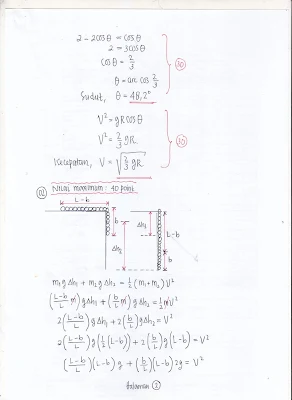 2 - 2cosθ = cosθ
2 = 3cosθ
cosθ = 2/3
θ = arc cos 2/3
Sudut, θ = 48,2°
30
V² = gRcosθ
V² = 2/3 gR
Kecepatan, V = √(2/3 gR)
30
02 Nilai maximum: 40 point
L-b
b
Δh₂
Δh₁
L-b
b
m₁gΔh₁ + m₂gΔh₂ = 1/2 (m₁+m₂)V²
(L-b/L m)gΔh₁ + (b/L m)gΔh₂ = 1/2 mV²
2(L-b/L)gΔh₁ + 2(b/L)gΔh₂ = V²
2(L-b/L)g(1/2(L-b)) + 2(b/L)g(L-b) = V²
(L-b/L)(L-b)g + (b/L)(L-b)2g = V²
Halaman 2